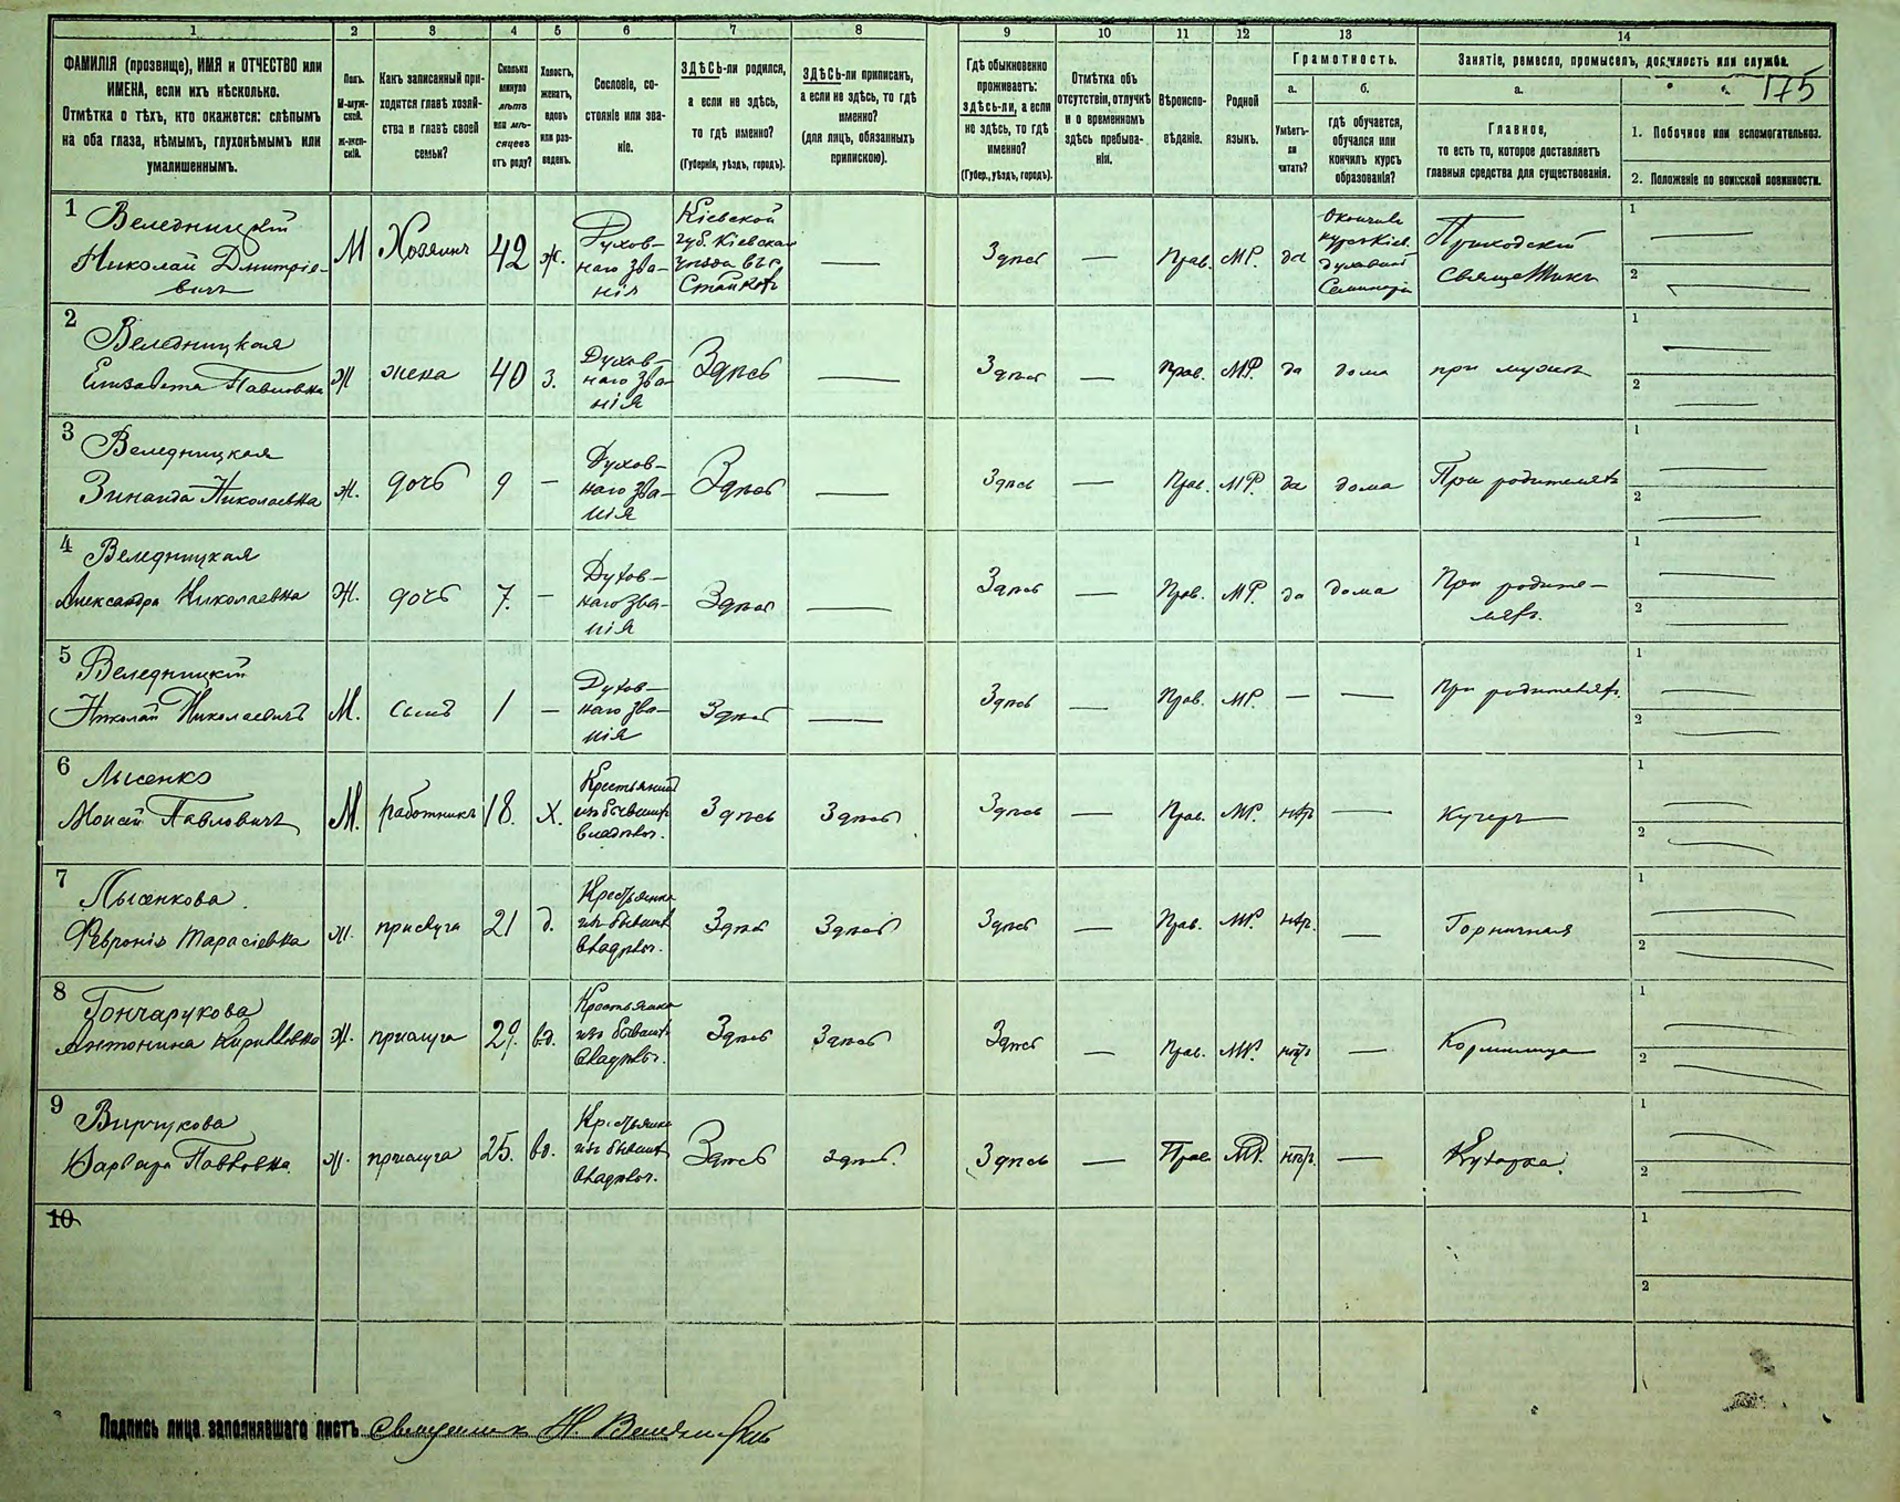 1 2 3 4 5 6 7 8 9 10 11 12 13 14
175
ФАМИЛІЯ (прозвище), ИМЯ и ОТЧЕСТВО или
ИМЕНА, если ихъ нѣсколько.
Отмѣтка о тѣхъ, кто окажется: слѣпымъ
на оба глаза, нѣмымъ, глухонѣмымъ или
умалишеннымъ.
Полъ.
М-муж-
ской.
ж-жен-
скій.
Какъ записанный при-
ходится главѣ хозяй-
ства и главѣ своей
семьи?
Сколько
минуло
лѣтъ
или мѣ-
сяцевъ
отъ роду?
Холостъ,
женатъ,
вдовъ
или раз-
веденъ.
Сословіе, со-
стояніе или зва-
ніе.
ЗДѢСЬ-ли родился,
а если не здѣсь,
то гдѣ именно?
(Губернія, уѣздъ, городъ).
ЗДѢСЬ-ли приписанъ,
а если не здѣсь, то гдѣ
именно?
(для лицъ, обязанныхъ
припискою).
Гдѣ обыкновенно
проживаетъ:
здѣсь-ли, а если
не здѣсь, то гдѣ
именно?
(Губер., уѣздъ, городъ).
Отмѣтка объ
отсутствіи, отлучкѣ
и о временномъ
здѣсь пребыва-
ніи.
Вѣроиспо-
вѣданіе.
Родной
языкъ.
Грамотность.
а.
Умѣетъ-
ли
читать?
б.
гдѣ обучается,
обучался или
кончилъ курсъ
образованія?
Занятіе, ремесло, промыселъ, должность или служба.
а.
Главное,
то есть то, которое доставляетъ
главныя средства для существованія.
1. Побочное или вспомогательное.
2. Положеніе по воинской повинности.
1
Веледницкій
Николай Дмитріе-
вичъ
М
Хозяинъ
42
ж.
Духов-
наго зва-
нія
Кіевской
губ. Кіевскаго
уѣзда въ с.
Стайкахъ
—
Здѣсь
—
Прав.
МР.
да
Окончилъ
курсъ Кіев.
духовной
Семинаріи
Приходскій
священникъ
1
2
2
Веледницкая
Елизавета Павловна
Ж
жена
40
з.
Духов-
наго зва-
нія
Здѣсь
—
Здѣсь
—
Прав.
МР.
да
дома
при мужѣ
1
2
3
Веледницкая
Зинаида Николаевна
ж.
дочь
9
—
Духов-
наго зва-
нія
Здѣсь
—
Здѣсь
—
Прав.
МР.
да
дома
При родителяхъ
1
2
4
Веледницкая
Александра Николаевна
Ж.
дочь
7.
—
Духов-
наго зва-
нія
Здѣсь
—
Здѣсь
—
Прав.
МР.
да
дома
При родите-
ляхъ.
1
2
5
Веледницкій
Николай Николаевичъ
М.
сынъ
1
—
Духов-
наго зва-
нія
Здѣсь
—
Здѣсь
—
Прав.
МР.
—
—
При родителяхъ.
1
2
6
Лысенко
Моисей Павловичъ
М.
работникъ
18.
х.
Крестьянинъ
изъ бывшихъ
владѣльч.
Здѣсь
Здѣсь
Здѣсь
—
Прав.
МР.
нѣтъ
—
Кучеръ
1
2
7
Лысенкова.
Февронія Тарасіевна
ж.
прислуга
21
д.
Крестьянка
изъ бывшихъ
владѣльч.
Здѣсь
Здѣсь
Здѣсь
—
Прав.
МР.
нѣтъ.
—
Горничная
1
2
8
Гончарукова
Антонина Кирилловна
Ж.
прислуга
29.
вд.
Крестьянка
изъ бывшихъ
владѣльч.
Здѣсь
Здѣсь
Здѣсь
—
Прав.
МР.
нѣтъ
—
Кормилица
1
2
9
Вирчукова
Варвара Павловна.
Ж.
прислуга
25.
вд.
Крестьянка
изъ бывшихъ
владѣльч.
Здѣсь
здѣсь.
Здѣсь
—
Прав.
МР.
нѣтъ.
—
Кухарка.
1
2
10
1
2
Подпись лица заполнявшаго листъ священникъ Н. Веледницкій